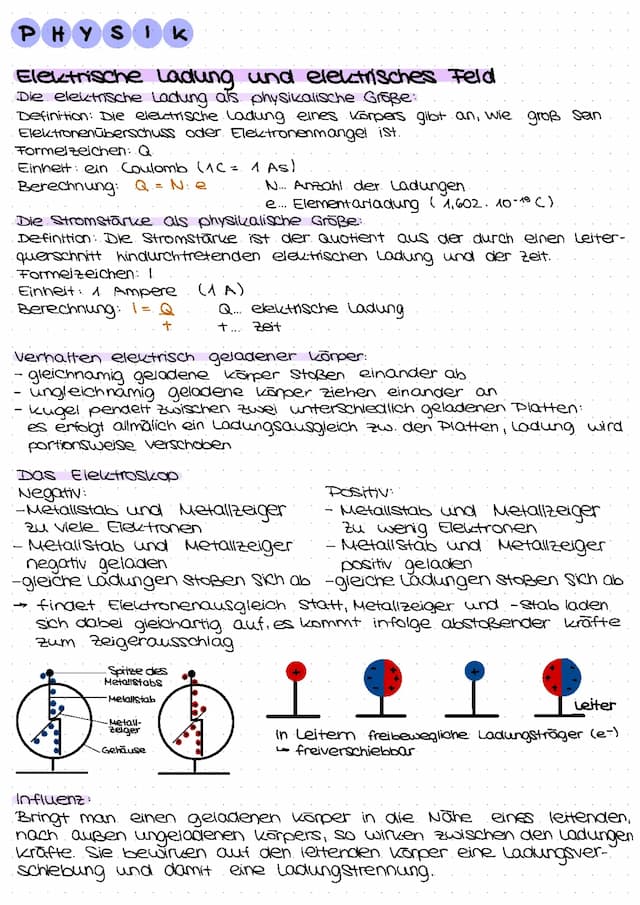 PHYSIK
Elektrische Ladung und elektrisches Feld
Die elektrische Ladung als physikalische Größe:
Definition: Die elektrische Ladung eines Körpers gibt an, wie groß sein
Elektronenüberschuss oder Elektronenmangel ist.
Formelzeichen: Q
Einheit: ein Coulomb (1C = 1 As)
Berechnung: Q = N · e N... Anzahl der Ladungen
e... Elementarladung (1,602 · 10⁻¹⁹ C)
Die Stromstärke als physikalische Größe:
Definition: Die Stromstärke ist der Quotient aus der durch einen Leiter-
querschnitt hindurchtretenden elektrischen Ladung und der Zeit.
Formelzeichen: I
Einheit: 1 Ampere (1 A)
Berechnung: I = Q Q... elektrische Ladung
t t... Zeit
Verhalten elektrisch geladener Körper:
- gleichnamig geladene Körper stoßen einander ab
- ungleichnamig geladene Körper ziehen einander an
- Kugel pendelt zwischen zwei unterschiedlich geladenen Platten:
es erfolgt allmälich ein Ladungsausgleich zw. den Platten, Ladung wird
portionsweise verschoben
Das Elektroskop
Negativ:
- Metallstab und Metallzeiger
zu viele Elektronen
- Metallstab und Metallzeiger
negativ geladen
- gleiche Ladungen stoßen sich ab
Positiv:
- Metallstab und Metallzeiger
zu wenig Elektronen
- Metallstab und Metallzeiger
positiv geladen
- gleiche Ladungen stoßen sich ab
→ findet Elektronenausgleich statt, Metallzeiger und -stab laden
sich dabei gleichartig auf, es kommt infolge abstoßender Kräfte
zum Zeigerausschlag
Spitze des
Metallstabs
Metallstab
Metall-
zeiger
Gehäuse
Leiter
In Leitern freibewegliche Ladungsträger (e⁻)
↳ freiverschiebbar
Influenz:
Bringt man einen geladenen Körper in die Nähe eines leitenden,
nach außen ungeladenen Körpers, so wirken zwischen den Ladungen
Kräfte. Sie bewirken auf den leitenden Körper eine Ladungsver-
schiebung und damit eine Ladungstrennung.